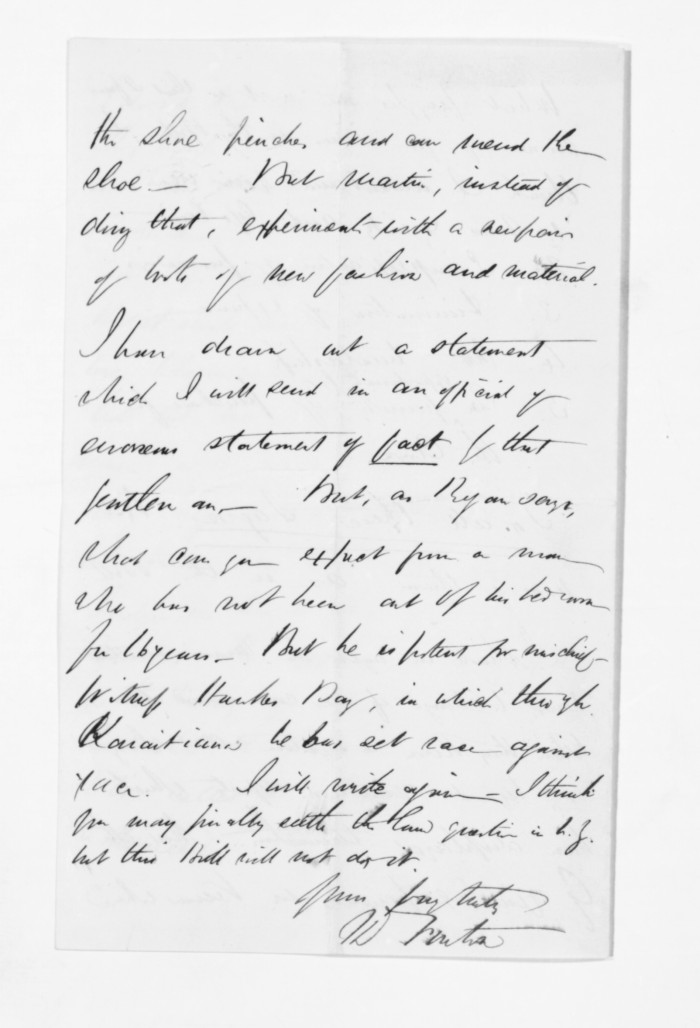 the shoe pinches and can mend the
shoe — But Martin, instead of
doing that, experiments with a new pair
of boots of new fashion and material.
I have drawn out a statement
which I will send in an official of
erroneous statement of fact of that
gentleman — But, as Ryan says,
what can you expect from a man
who has not been out of his bedroom
for 16 years — But he is potent for mischief —
Witness Hawkes Bay, in which through
Karaitiana he has set race against
race. I will write again — I think
you may finally settle the land question in N.Z.
but this Bill will not do it.
Yours very truly
W Fenton